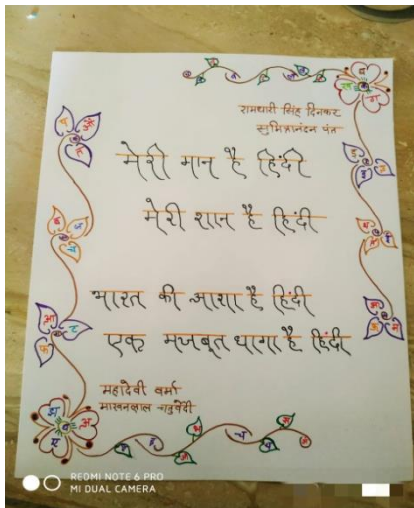 रामधारी सिंह दिनकर
सुमित्रानंदन पंत
मेरी मान है हिंदी
मेरी शान है हिंदी
भारत की आशा है हिंदी
एक मजबूत धागा है हिंदी
महादेवी वर्मा
माखनलाल चतुर्वेदी
REDMI NOTE 6 PRO
MI DUAL CAMERA